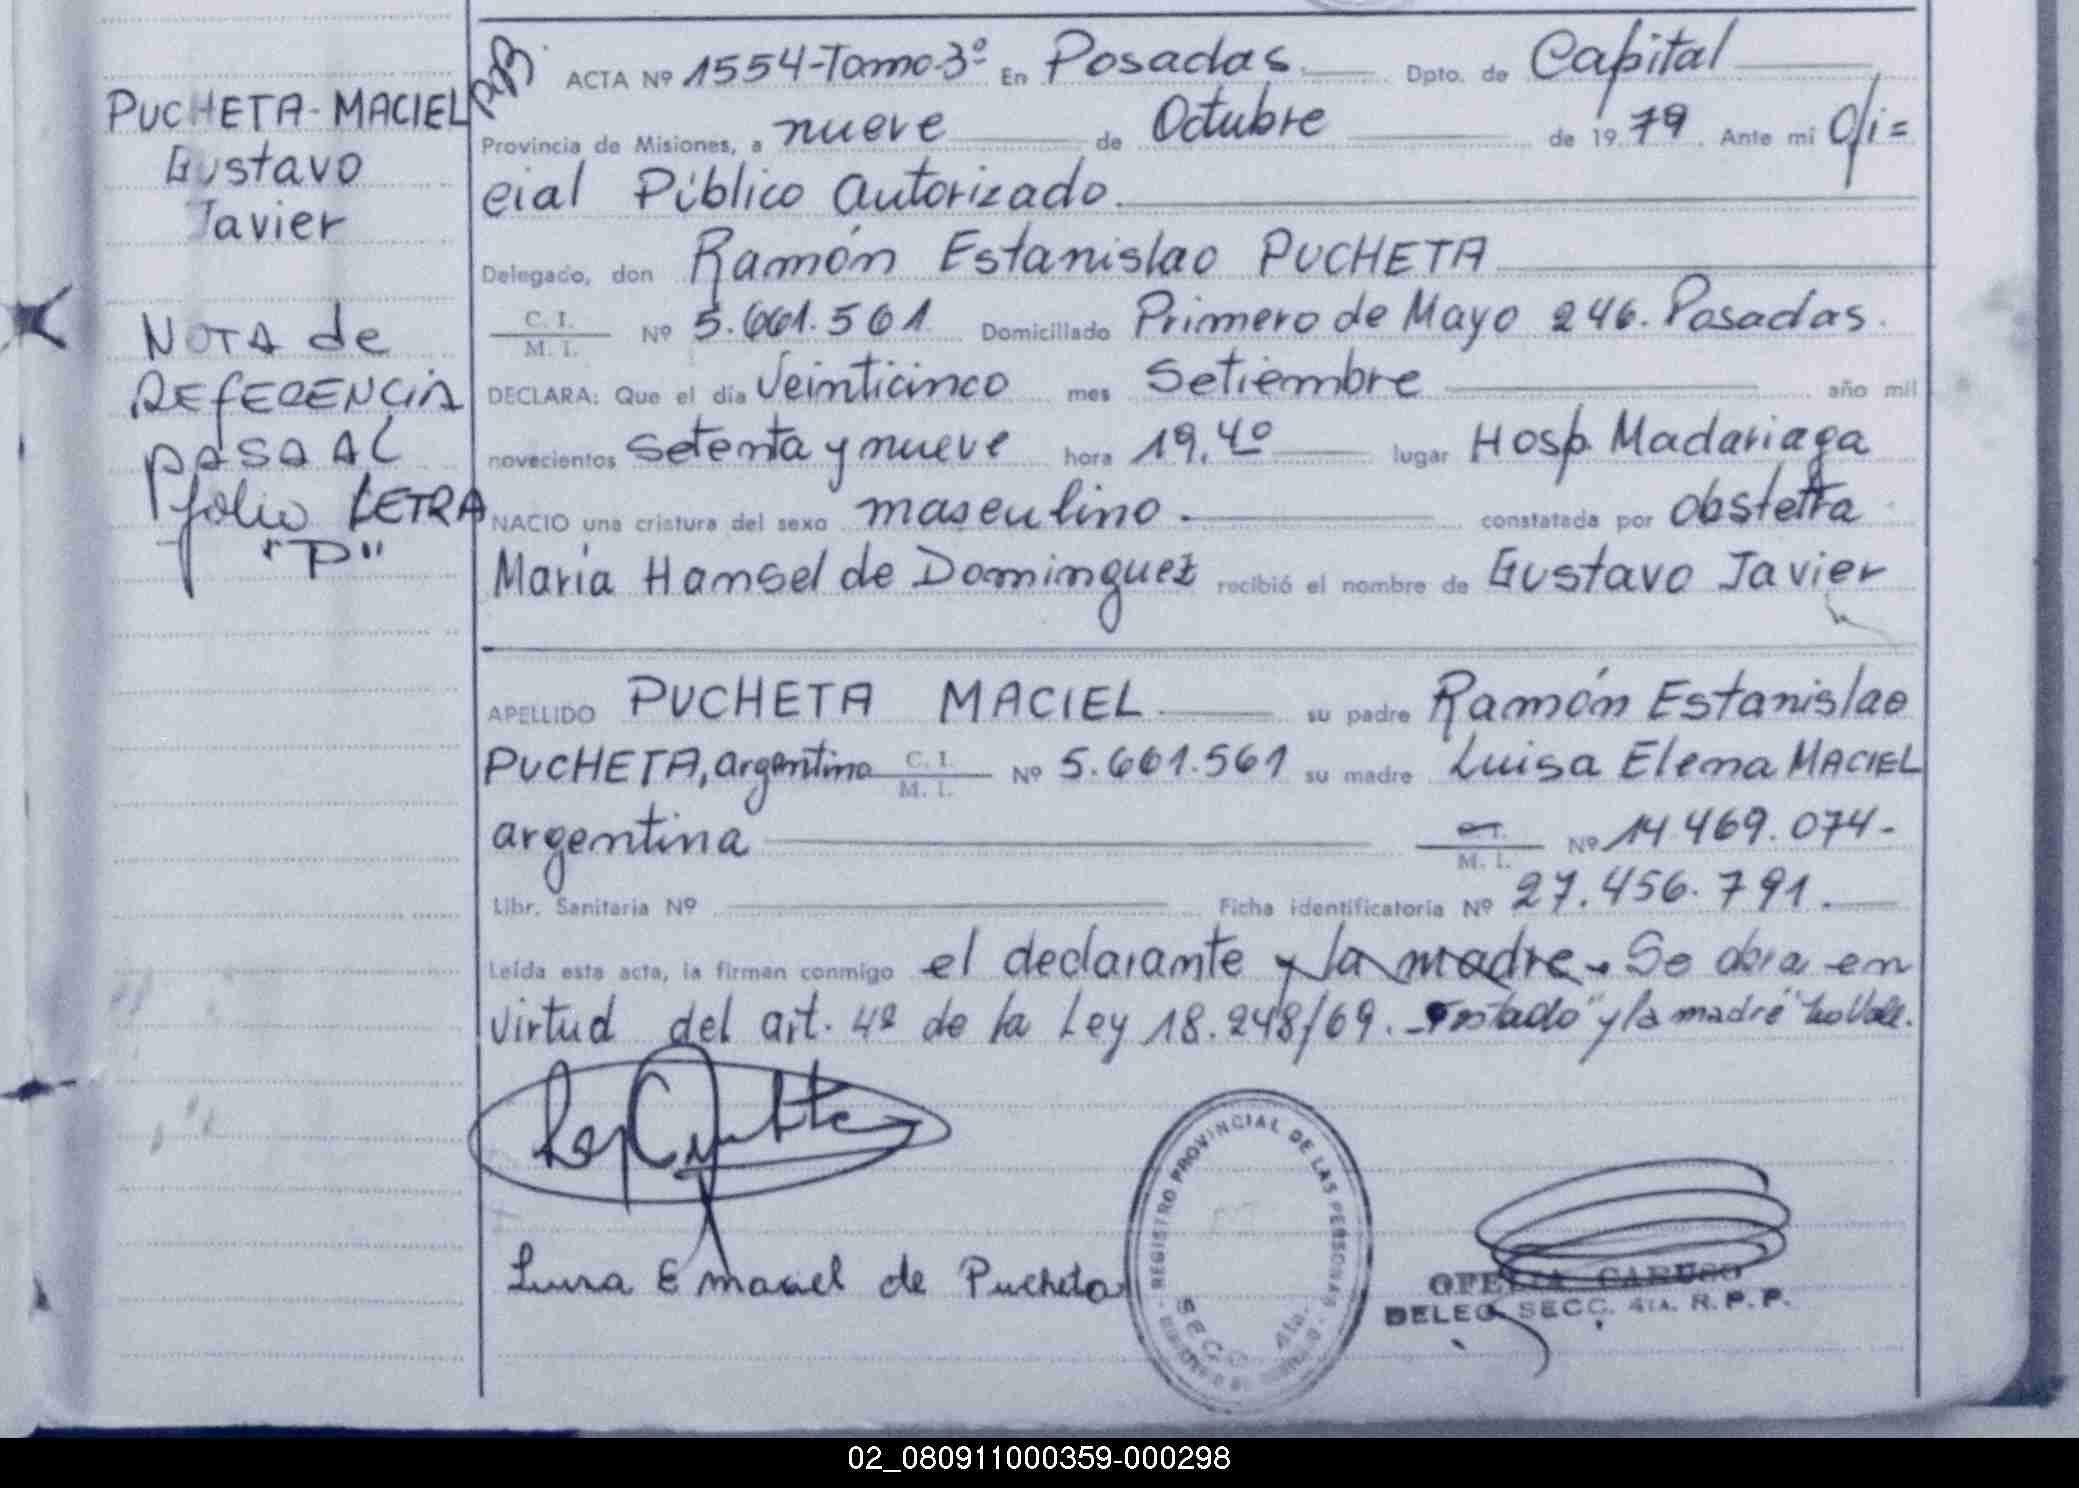 PUCHETA-MACIEL
Gustavo
Javier
NOTA de
REFERENCIA
PASA AL
folio LETRA
"P"
ACTA Nº 1554-Tomo-3º En Posadas Dpto. de Capital
Provincia de Misiones, a nueve de Octubre de 1979. Ante mi Ofi=
cial Público Autorizado.
Delegado, don Ramón Estanislao PUCHETA
C. I.
M. I. Nº 5.661.561 Domiciliado Primero de Mayo 246. Posadas.
DECLARA: Que el día Veinticinco mes Setiembre año mil
novecientos setenta y nueve hora 19,40 lugar Hosp. Madariaga
NACIO una criatura del sexo masculino. constatada por obstetra
María Hansel de Dominguez recibió el nombre de Gustavo Javier
APELLIDO PUCHETA MACIEL su padre Ramón Estanislao
PUCHETA, argentino C. I. M. I. Nº 5.661.561 su madre Luisa Elena MACIEL
argentina M. I. Nº 14469.074-
Libr. Sanitaria Nº Ficha identificatoria Nº 27.456.791.
Leída esta acta, la firman conmigo el declarante y la madre. Se obra en
virtud del art. 4º de la Ley 18.248/69.- Testado "y la madre" No Vale.
Luisa E Maciel de Pucheta
REGISTRO PROVINCIAL DE LAS PERSONAS
SECC. 4ta.
OFELIA CARUSO
DELEG. SECC. 4TA. R. P. P.
02_080911000359-000298